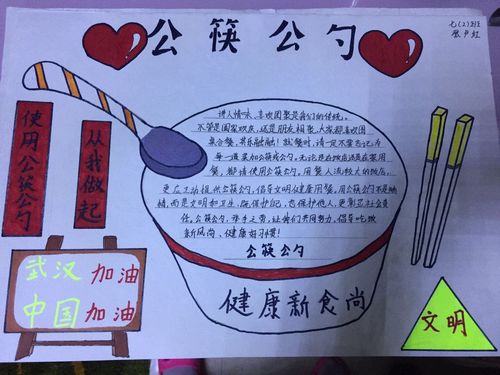 公筷公勺
七(2)班
使用公筷公勺
从我做起
讲人情味、喜欢团聚是我们的传统。
不管是国家欢庆,还是朋友相聚,大家都喜欢围
桌合餐,其乐融融!就餐时,请一定不要忘记,为
每一道菜加公筷或公勺。无论是在饭店还是在家用
餐,都请使用公筷公勺。用餐人流较大的饭店,
更应主动提供公筷公勺,倡导文明健康用餐。用公筷公勺不是嫌
情,而是文明和卫生,既保护己,也保护他人,更彰显社会责
任。公筷公勺,举手之劳,让我们共同努力,倡导吃饭
新风尚、健康好习惯!
公筷公勺
健康新食尚
武汉加油
中国加油
文明